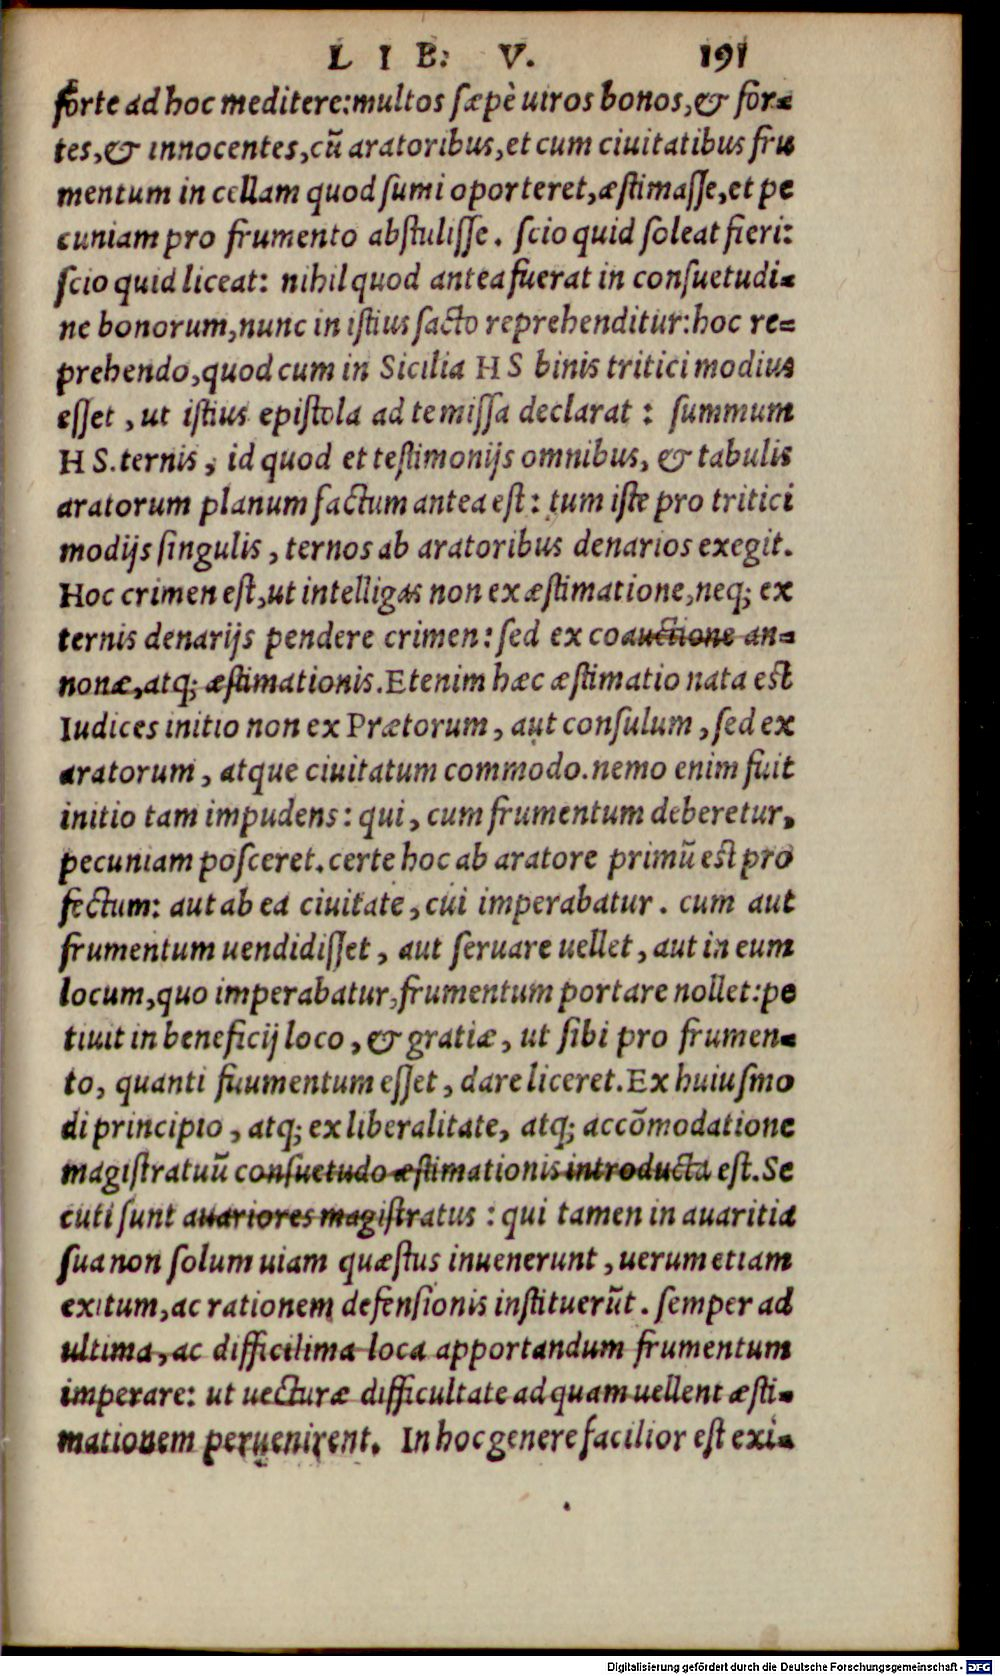 LIB: V. 191
forte ad hoc meditere: multos sæpè uiros bonos, & for=
tes, & innocentes, cũ aratoribus, et cum ciuitatibus fru
mentum in cellam quod sumi oporteret, æstimasse, et pe
cuniam pro frumento abstulisse. scio quid soleat fieri:
scio quid liceat: nihil quod antea fuerat in consuetudi=
ne bonorum, nunc in istius facto reprehenditur: hoc re=
prehendo, quod cum in Sicilia HS binis tritici modius
esset, ut istius epistola ad te missa declarat: summum
HS. ternis, id quod et testimonijs omnibus, & tabulis
aratorum planum factum antea est: tum iste pro tritici
modijs singulis, ternos ab aratoribus denarios exegit.
Hoc crimen est, ut intelligas non ex æstimatione, neq; ex
ternis denarijs pendere crimen: sed ex coauctione an=
nonæ, atq; æstimationis. Etenim hæc æstimatio nata est
Iudices initio non ex Prætorum, aut consulum, sed ex
aratorum, atque ciuitatum commodo. nemo enim fuit
initio tam impudens: qui, cum frumentum deberetur,
pecuniam posceret. certe hoc ab aratore primũ est pro
fectum: aut ab ea ciuitate, cui imperabatur. cum aut
frumentum uendidisset, aut seruare uellet, aut in eum
locum, quo imperabatur, frumentum portare nollet: pe
tiuit in beneficij loco, & gratiæ, ut sibi pro frumen=
to, quanti fuumentum esset, dare liceret. Ex huiusmo
di principio, atq; ex liberalitate, atq; accõmodatione
magistratuũ consuetudo æstimationis introducta est. Se
cuti sunt auariores magistratus: qui tamen in auaritia
sua non solum uiam quæstus inuenerunt, uerum etiam
exitum, ac rationem defensionis instituerũt. semper ad
ultima, ac difficilima loca apportandum frumentum
imperare: ut uecturæ difficultate ad quam uellent æsti=
mationem peruenirent. In hoc genere facilior est exi=
Digitalisierung gefördert durch die Deutsche Forschungsgemeinschaft - DFG